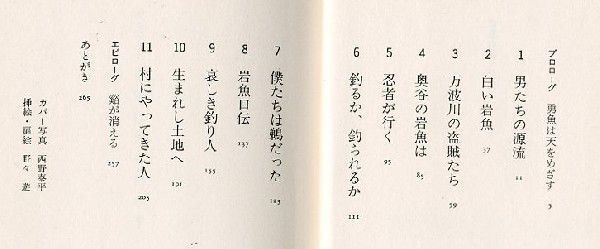 プロローグ 勇魚は天をめざす 5
1 男たちの源流 11
2 白い岩魚 37
3 万波川の盗賊たち 59
4 奥谷の岩魚は 85
5 忍者が行く 95
6 釣るか、釣られるか 111
7 僕たちは鵜だった 125
8 岩魚口伝 137
9 哀しき釣り人 155
10 生まれし土地へ 181
11 村にやってきた人 205
エピローグ 谿が消える 237
あとがき 265
カバー写真 西野泰平
挿絵・扉絵 野々 遊